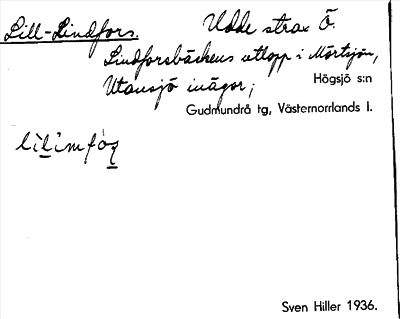 Lill-Lindfors.
Udde strax Ö.
Lindforsbäckens utlopp i Mörtsjön,
Utansjö inägor;
Högsjö s:n
Gudmundrå tg, Västernorrlands l.
Sven Hiller 1936.